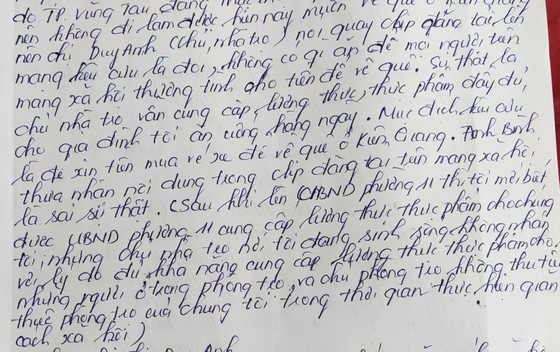 do TP. Vũng Tàu, đang
nên không đi làm được, hiện nay muốn về quê ở Kiên Giang
nên chị Duy Anh (chủ nhà trọ) nơi quay clip đăng tải lên
mạng kêu cứu là đói, không có gì ăn để mọi người trên
mạng xã hội thương tình cho tiền để về quê. Sự thật là
chủ nhà trọ vẫn cung cấp, lương thực, thực phẩm đầy đủ,
cho gia đình tôi ăn uống hằng ngày. Mục đích kêu cứu
là để xin tiền mua vé xe để về quê ở Kiên Giang. Anh Bình
thừa nhận nội dung trong clip đăng tải trên mạng xã hội
là sai sự thật. (Sau khi lên UBND phường 11 thì tôi mới biết
được UBND phường 11 cung cấp lương thực thực phẩm cho chúng
tôi, nhưng chủ nhà trọ nơi tôi đang sinh sống không nhận
với lý do đủ khả năng cung cấp lương thực thực phẩm cho
những người ở trong phòng trọ, và chủ phòng trọ không thu tiền
thuê phòng trọ của chúng tôi trong thời gian thực hiện giãn
cách xã hội)